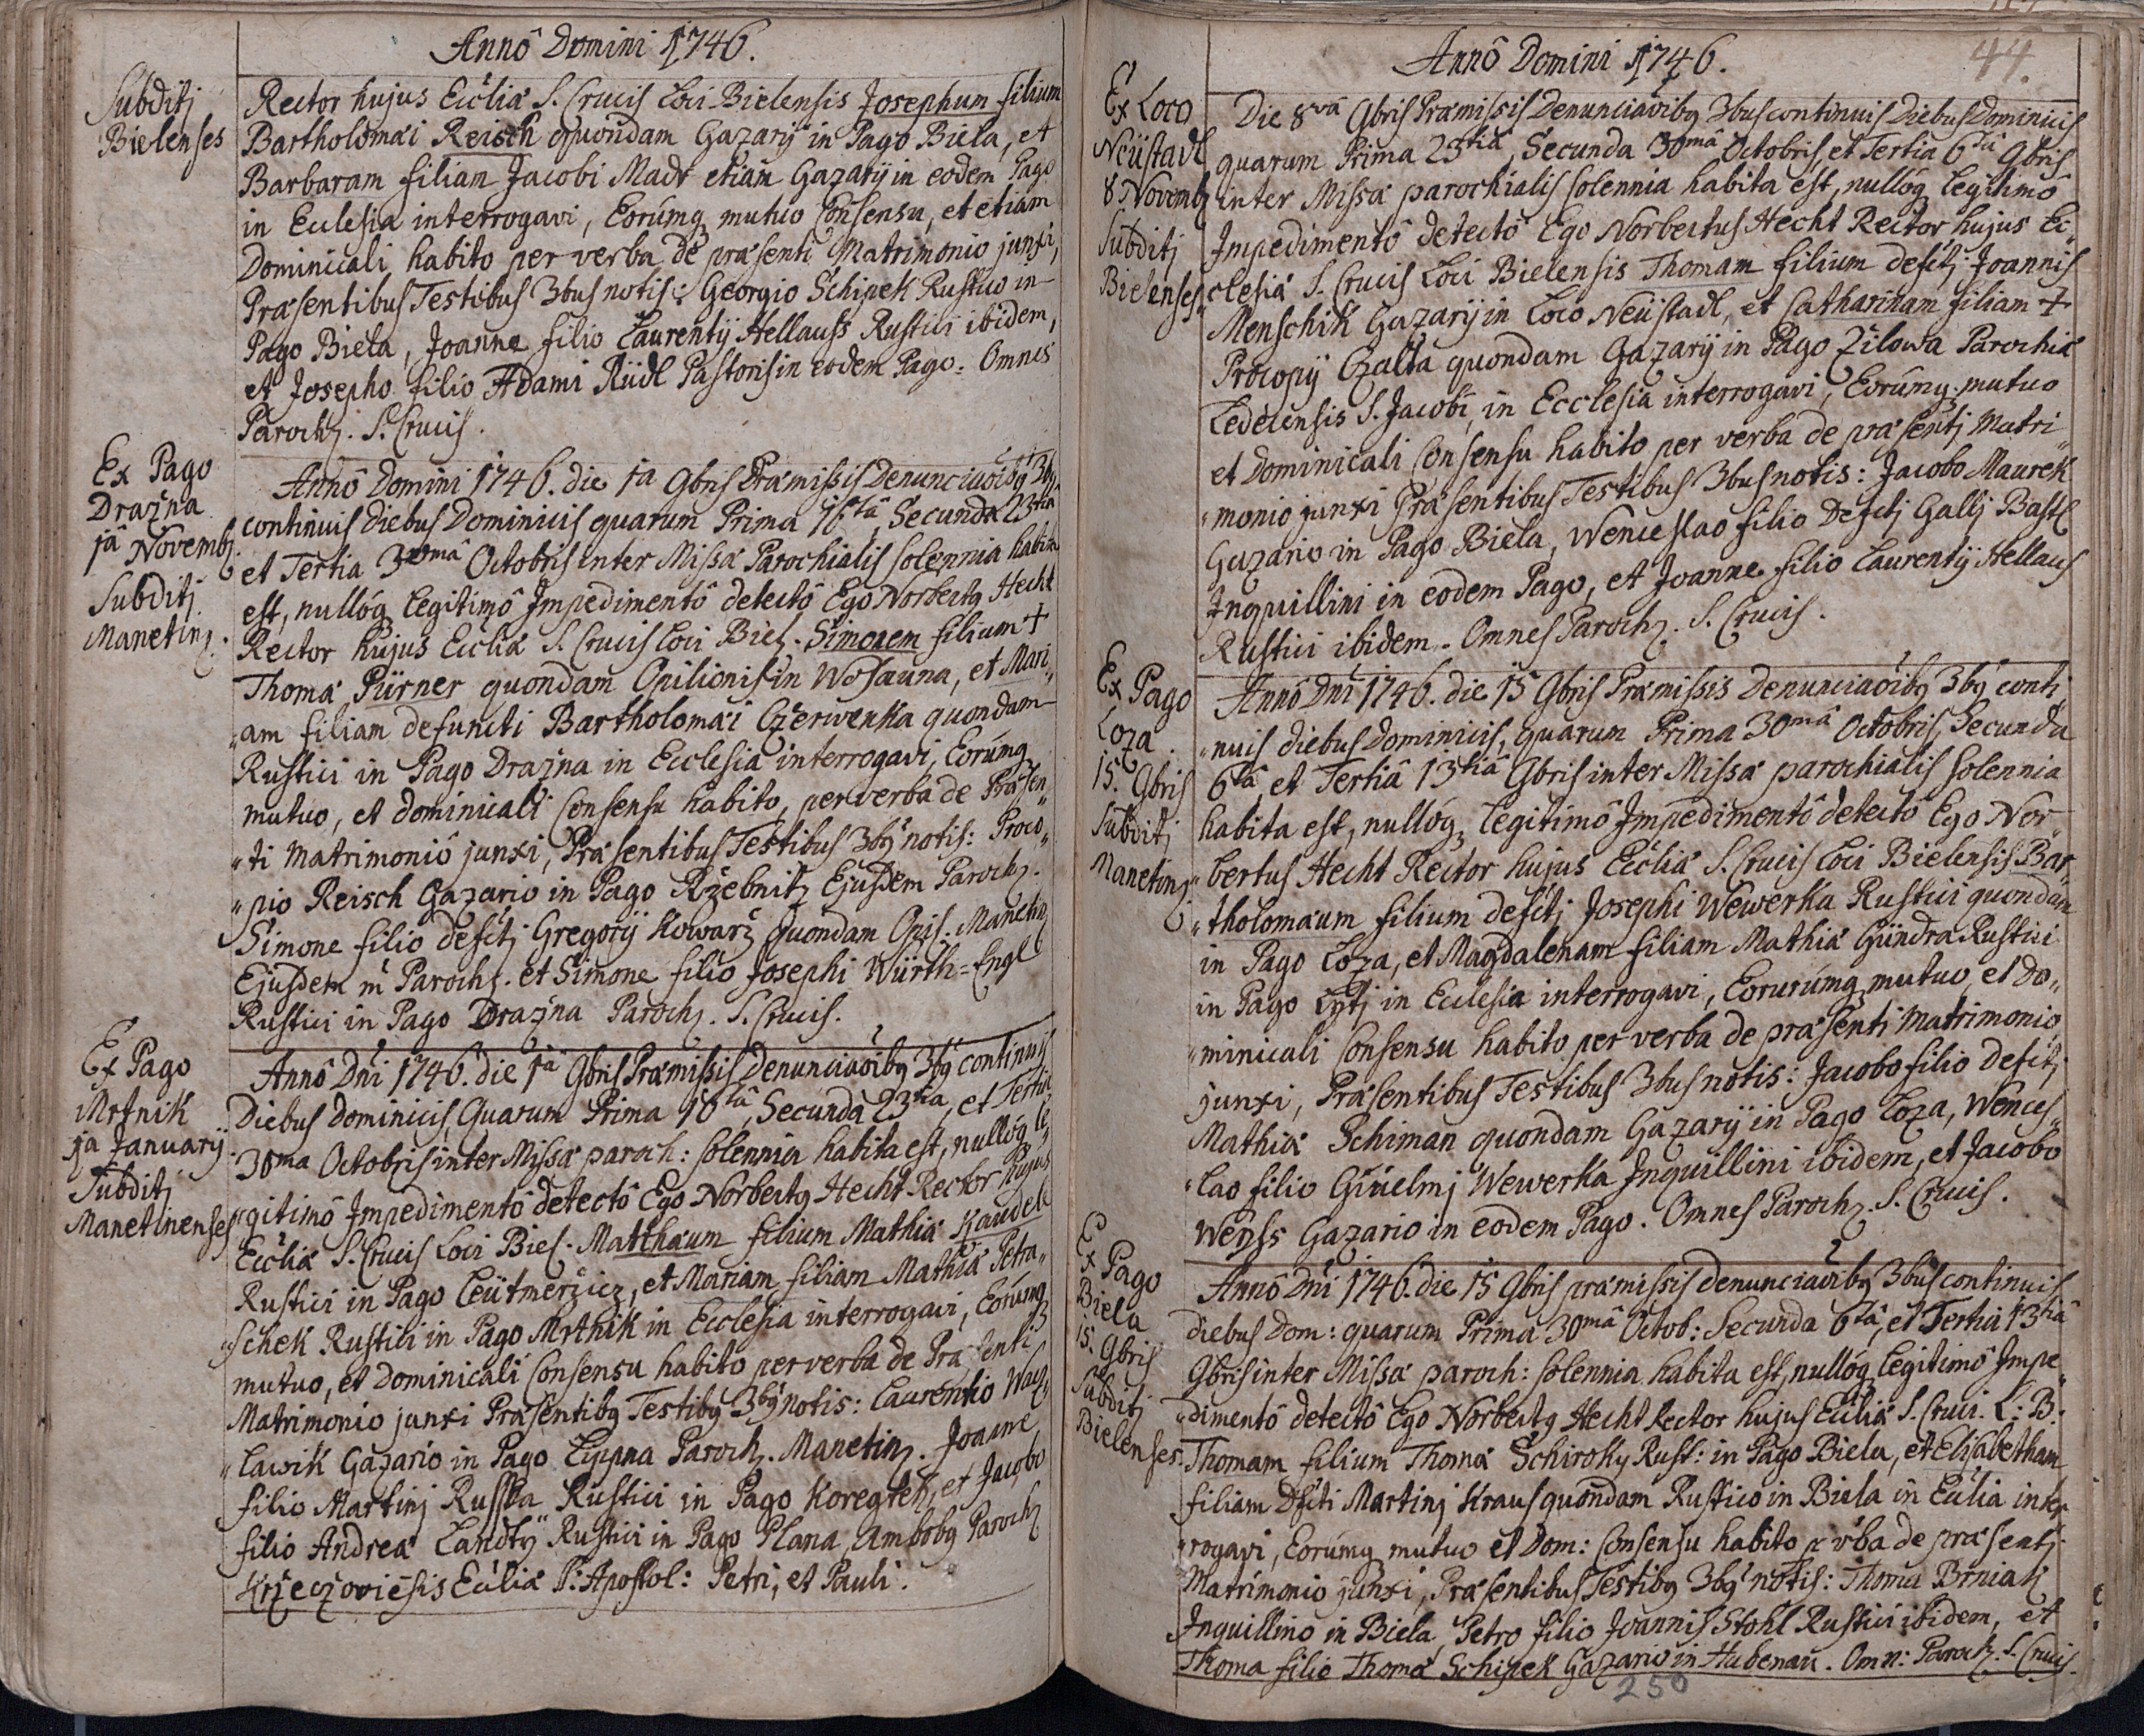 Annô Domini 1746.
Subditj
Bielenses
Rector hujus Ecclia S. Crucis Loci Bielensis Josephum filium
Bartholomæi Reisch quondam Gazarij in Pago Biela, et
Barbaram filiam Jacobi Madr etiam Gazarij in eodem Pago
in Ecclesia interrogavi, Eorúmq mutuo Consensu, et etiam
Dominicali habito per verba de præsenti Matrimonio junxi,
Præsentibus Testibus 3bus notis: Georgio Schipek Rustico in
Pago Biela, Joanne filio Laurentij Hellauss Rustici ibidem,
et Josepho filio Adami Rüdl Pastoris in eodem Pago. Omnes
Paroch. S. Crucis.
Ex Pago
Drazna
1a Novemb.
Subditj
Manetin.
Annô Domini 1746. die 1a 9bris Præmissis Denunciaoibq 3bq
continuis diebus Dominicis quarum Prima 16ta, Secunda 23tia
et Tertia 30mâ Octobris inter Missæ Parochialis solennia habita
est, nullóq Legitimô Impedimentô detectô Ego Norbertq Hecht
Rector hujus Ecclia S. Crucis Loci Biel. Simonem filium +
Thomæ Pürner quondam Opilionis in Wosauna, et Mari„
„am filiam defuncti Bartholomæi Czerwenka quondam
Rustici in Pago Drazna in Ecclesia interrogavi, Eorúmq
mutuo, et dominicali Consensu habito, per verba de Præsen„
„ti Matrimoniô junxi, Præsentibus Testibus 3bq notis: Proco„
„pio Reisch Gazario in Pago Rzebnitz Ejusdem Paroch.
Simone filio defctj Gregorij Kowarz quondam Opil. Manetin
Ejusdem m Paroch. et Simone filio Josephi Würth=Engl
Rustici in Pago Drazna Paroch. S. Crucis.
Ex Pago
Mrtnik
1a Januarij
Subditj
Manetinenses
Annô Dni 1746. die 1a 9bris Præmissis Denunciaoibq 3bq continuis
Diebus Dominicis Quarum Prima 16tâ, Secunda 23tia, et Tertia
30ma Octobris inter Missæ paroch: solennia habita est, nullóq le„
„gitimô Impedimentô detectô Ego Norbertq Hecht Rector hujus
Ecclia S. Crucis Loci Biel. Matthæum filium Mathiæ Kaudele
Rustici in Pago Leütmerzicz, et Mariam filiam Mathiæ Petra„
„schek Rustici in Pago Mrthik in Ecclesia interrogavi, Eorúmq
mutuo, et dominicali Consensu habito per verba de Præsenti
Matrimonio junxi Præsentibq Testibq 3bq notis: Laurentio Way„
„lawik Gazario in Pago Lipna Paroch. Manetin. Joanne
filio Martinj Russka Rustici in Pago Koregteh, et Jacobo
filio Andreæ Landty Rustici in Pago Plana, Ambobq Paroch
Krzeczoviēsis Ecclia S: Apostol: Petri, et Pauli.
Annô Domini 1746.
44.
Ex Loco
Neüstadl
8 Novemb
Subditj
Bielenses
Die 8vâ 9bris Præmissis Denunciaōibq 3bus continuis Diebus Dominicis
quarum Prima 23tiâ, Secunda 30mâ Octobris, et Tertia 6tâ 9bris
inter Missæ parochialis solennia habita est, nullóq legitimô
Impedimentô detectô Ego Norbertus Hecht Rector hujus Ec„
„clesiæ S. Crucis Loci Bielensis Thomam filium defctj Joannis
Menschik Gazarij in Loco Neüstadl, et Catharinam filiam +
Procopij Czalta quondam Gazarij in Pago Zilowa Parochiæ
Ledecensis S. Jacobi, in Ecclesia interrogavi, Eorúmq mutuo
et Dominicali Consensu habito per verba de præsentj Matri
„monio junxi Præsentibus Testibus 3bus notis: Jacobo Maurek
Gazario in Pago Biela, Wenceslao filio Defctj Gallj Bastl
Inquillini in eodem Pago, et Joanne filio Laurentij Hellaus
Rustici ibidem. Omnes Paroch. S. Crucis.
Ex Pago
Loza
15. 9bris
Subditj
Manetinz
Annô Dni 1746. die 15 9bris Præmissis Denunciaōibq 3bq conti
„nuis diebus dominicis, quarum Prima 30mâ Octobris, Secunda
6tâ, et Tertiâ 13tiâ 9bris inter Missæ parochialis solennia
habita est, nullóq legitimô Impedimentô detectô Ego Nor„
„bertus Hecht Rector hujus Ecclia S. Crucis Loci Bielensis Bar„
„tholomæum filium defctj Josephi Wewerka Rustici quondam
in Pago Loza, et Magdalenam filiam Mathiæ Gündra Rustici
in Pago Lytj in Ecclesia interrogavi, Eorurúmq mutuo, et Do„
„minicali Consensu habito per verba de præsenti Matrimonio
junxi, Præsentibus Testibus 3bus notis: Jacobo filio defctj
Mathiæ Schiman quondam Gazarij in Pago Loza, Wences„
„lao filio Guielmj Wewerka Inquillini ibidem, et Jacobo
Weyss Gazario in eodem Pago. Omnes Paroch. S. Crucis.
Ex Pago
Biela
15. 9bris
Subditj
Bielenses.
Annô Dni 1746. die 15 9bris præmissis denunciaōibq 3bus continuis
diebus Dom: quarum Prima 30mâ Octob: Secunda 6tâ, et Tertia 13tiâ
9bris inter Missæ paroch: solennia habita est, nullóq legitimô Impe„
„dimentô detectô Ego Norbertq Hecht Rector hujus Ecclia S. Cruci. L: B:
Thomam filium Thomæ Schiroky Rust: in Pago Biela, et Elisabetham
filiam Dfcti Martinj Kraus quondam Rustico in Biela in Ecclia inter
„rogavi, Eorúmq mutuo et Dom: Consensu habito p vba de præsentj
Matrimonio junxi, Præsentibus Testibq 3bq notis: Thoma Brniak
Inquillino in Biela, Petro filio Joannis Stohl Rustici ibidem, et
Thoma filio Thomæ Schipek Gazario in Hubenau. Omn: Paroch. S. Crucis.
250